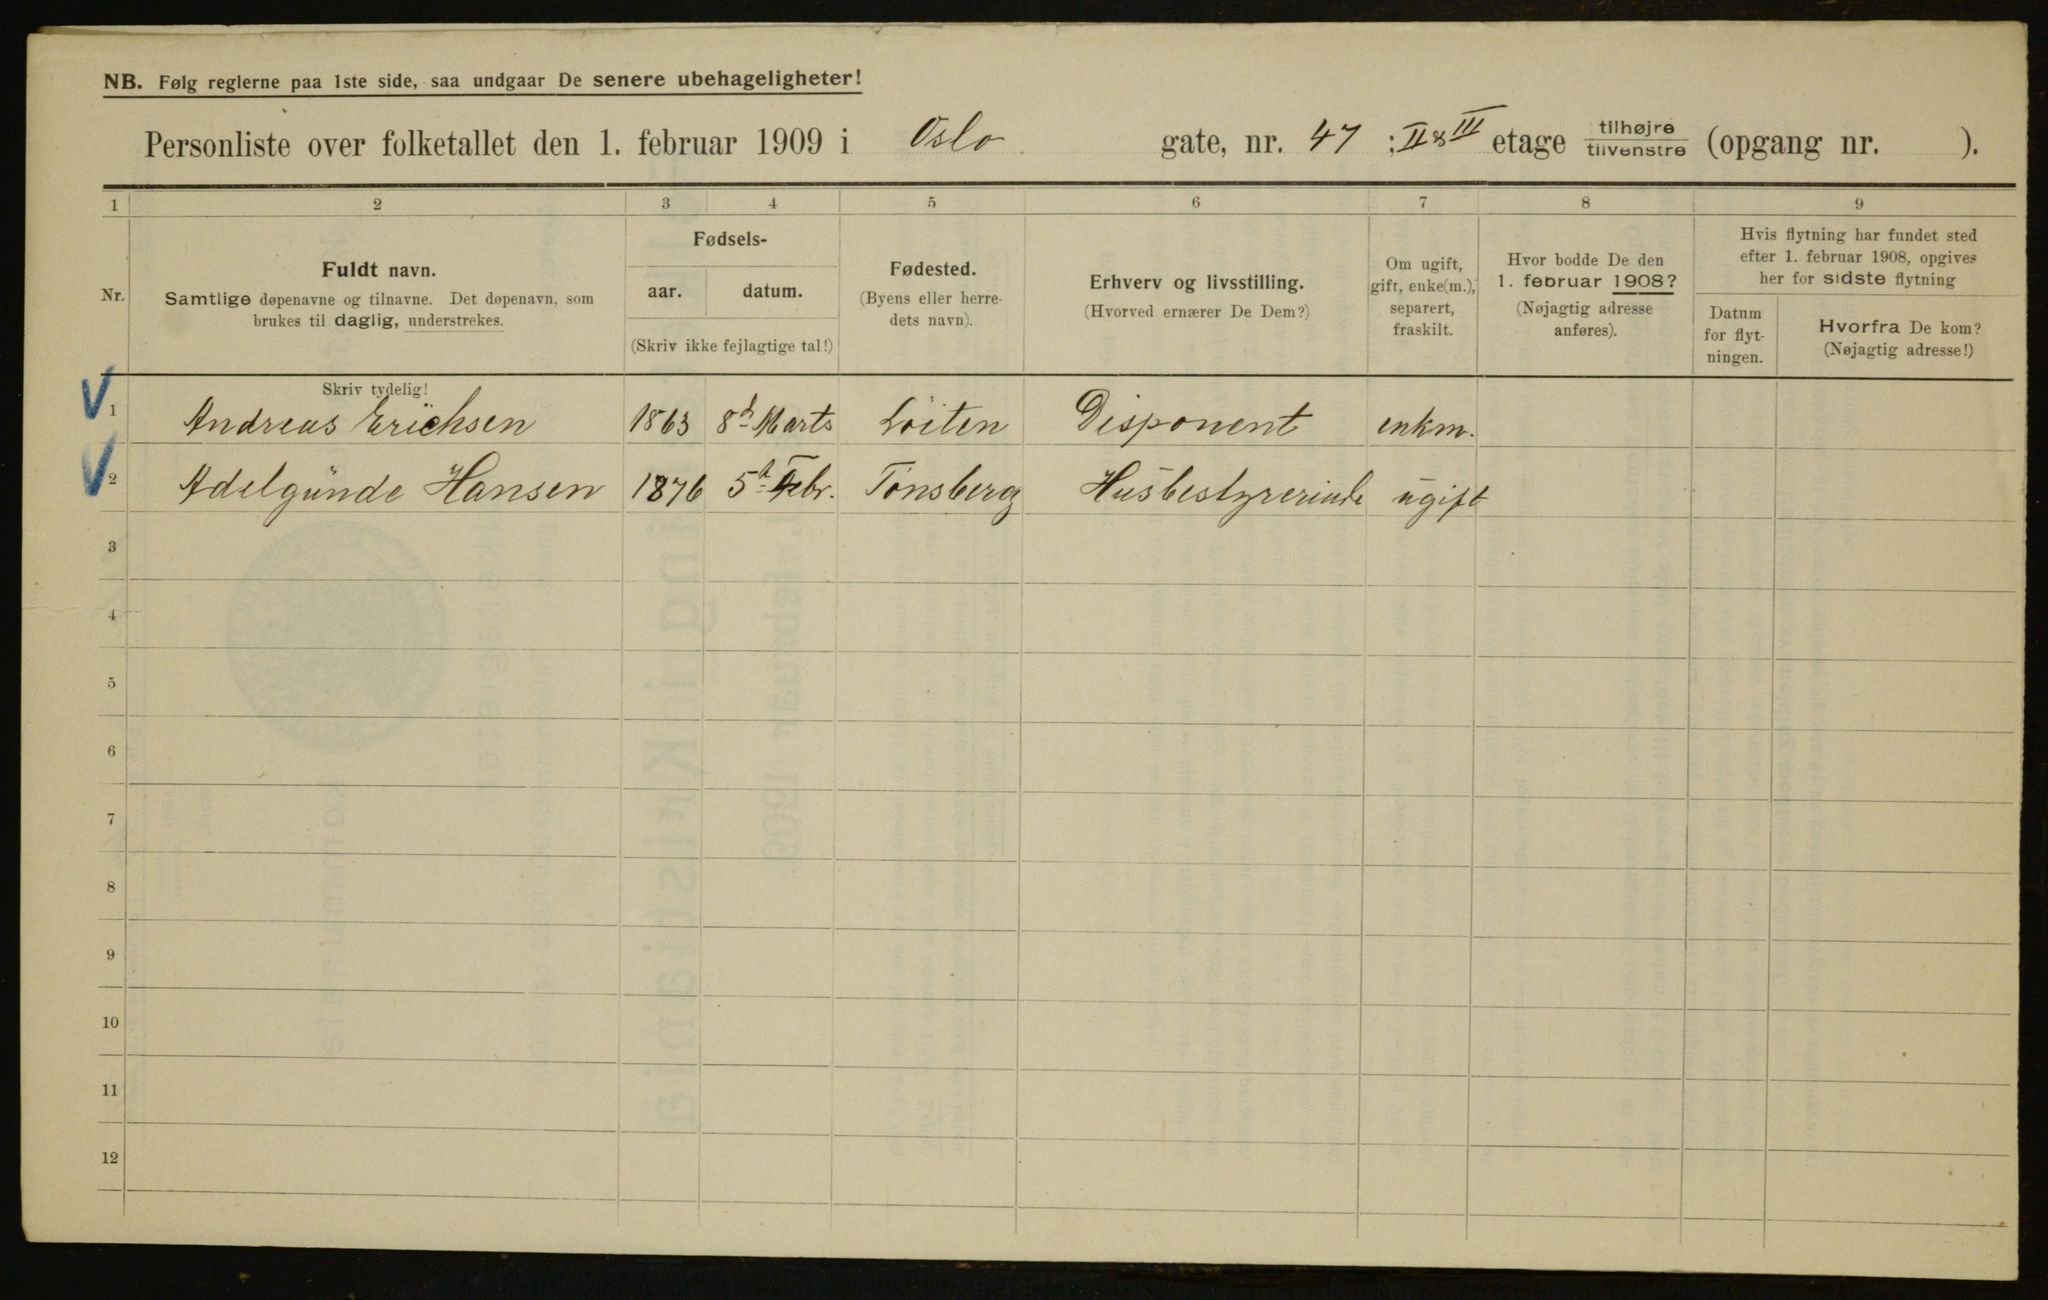 NB. Følg reglerne paa 1ste side, saa undgaar De senere ubehageligheter!
Personliste over folketallet den 1. februar 1909 i Oslo gate, nr. 47 ; II & III etage tilhøjre tilvenstre (opgang nr. ).
1 2 3 4 5 6 7 8 9
Nr.
Fuldt navn.
Samtlige døpenavne og tilnavne. Det døpenavn, som
brukes til daglig, understrekes.
Fødsels-
aar. datum.
(Skriv ikke fejlagtige tal!)
Fødested.
(Byens eller herre-
dets navn).
Erhverv og livsstilling.
(Hvorved ernærer De Dem?)
Om ugift,
gift, enke(m.),
separert,
fraskilt.
Hvor bodde De den
1. februar 1908?
(Nøjagtig adresse
anføres).
Hvis flytning har fundet sted
efter 1. februar 1908, opgives
her for sidste flytning
Datum
for flyt-
ningen.
Hvorfra De kom?
(Nøjagtig adresse!)
Skriv tydelig!
1 Andreas Erichsen 1863 8d Marts Löiten Disponent enkm.
2 Adelgunde Hansen 1876 5d Febr. Tönsberg Husbestyrerinde ugift
3
4
5
6
7
8
9
10
11
12